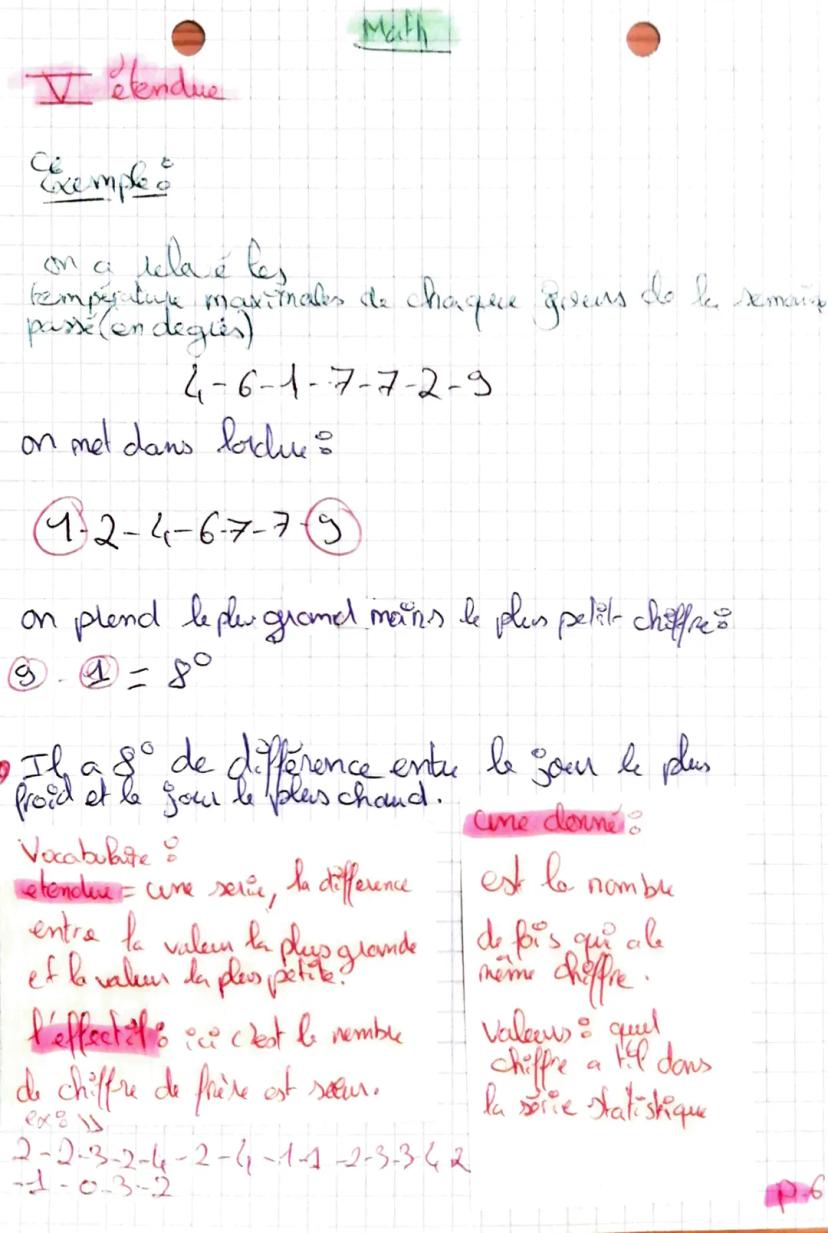 Math
V étendue
Exemple:
on a relevé les
température maximales de chaque jours de la semaine
passé (en degrés)
4-6-1-7-7-2-9
on met dans lordre:
1-2-4-6-7-7-9
on prend le plus grand moins le plus petit chiffre:
9 - 1 = 8°
Il a 8° de différence entre le jour le plus
froid et le jour le plus chaud.
Vocabulaire:
etendue = une serie, la difference
entre la valeur la plus grande
et la valeur la plus petite.
l'effectif: ici c'est le nombre
de chiffre de frère est sœur.
ex:
2-2-3-2-4-2-4-1-1-2-3-3 4 2
-1-0-3-2
une donné:
est le nombre
de fois qui a le
même chiffre.
valeurs: quel
chiffre a t'il dans
la série statistique
p.6